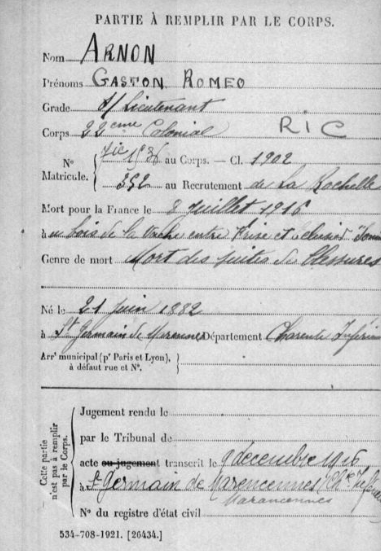 PARTIE À REMPLIR PAR LE CORPS.
Nom ARNON
Prénoms GASTON ROMEO
Grade S/Lieutenant
Corps 22eme Colonial RIC
N° Matricule. 1536 au Corps. — Cl. 1902
352 au Recrutement de La Rochelle
Mort pour la France le 8 juillet 1916
à au bois de la Vache entre Frise et
Genre de mort Mort des suites de Blessures
Né le 21 juin 1882
à St Germain de Département Charente Inférieure
Arr' municipal (p' Paris et Lyon),
à défaut rue et N°.
Cette partie n'est pas à remplir par le Corps.
Jugement rendu le
par le Tribunal de
acte ou jugement transcrit le 9 decembre 1916
à St Germain de Marencennes
Marancennes
N° du registre d'état civil
534-708-1921. [26434.]